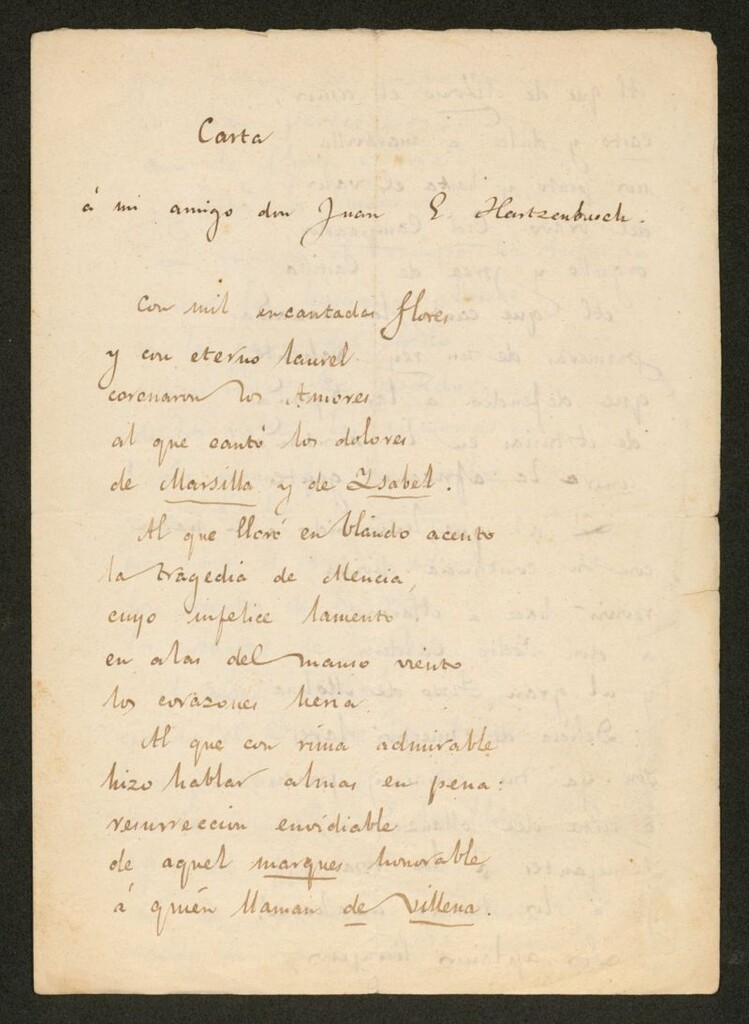 Carta
á mi amigo don Juan E Hartzenbusch.
Con mil encantadas flores
y con eterno laurel
coronaron los Amores
al que cantó los dolores
de Marsilla y de Isabel.
Al que lloró en blando acento
la tragedia de Mencia,
cuyo infelice lamento
en alas del manso viento
los corazones heria.
Al que con rima admirable
hizo hablar almas en pena:
resurreccion envidiable
de aquel marques honorable
á quién llaman de Villena.